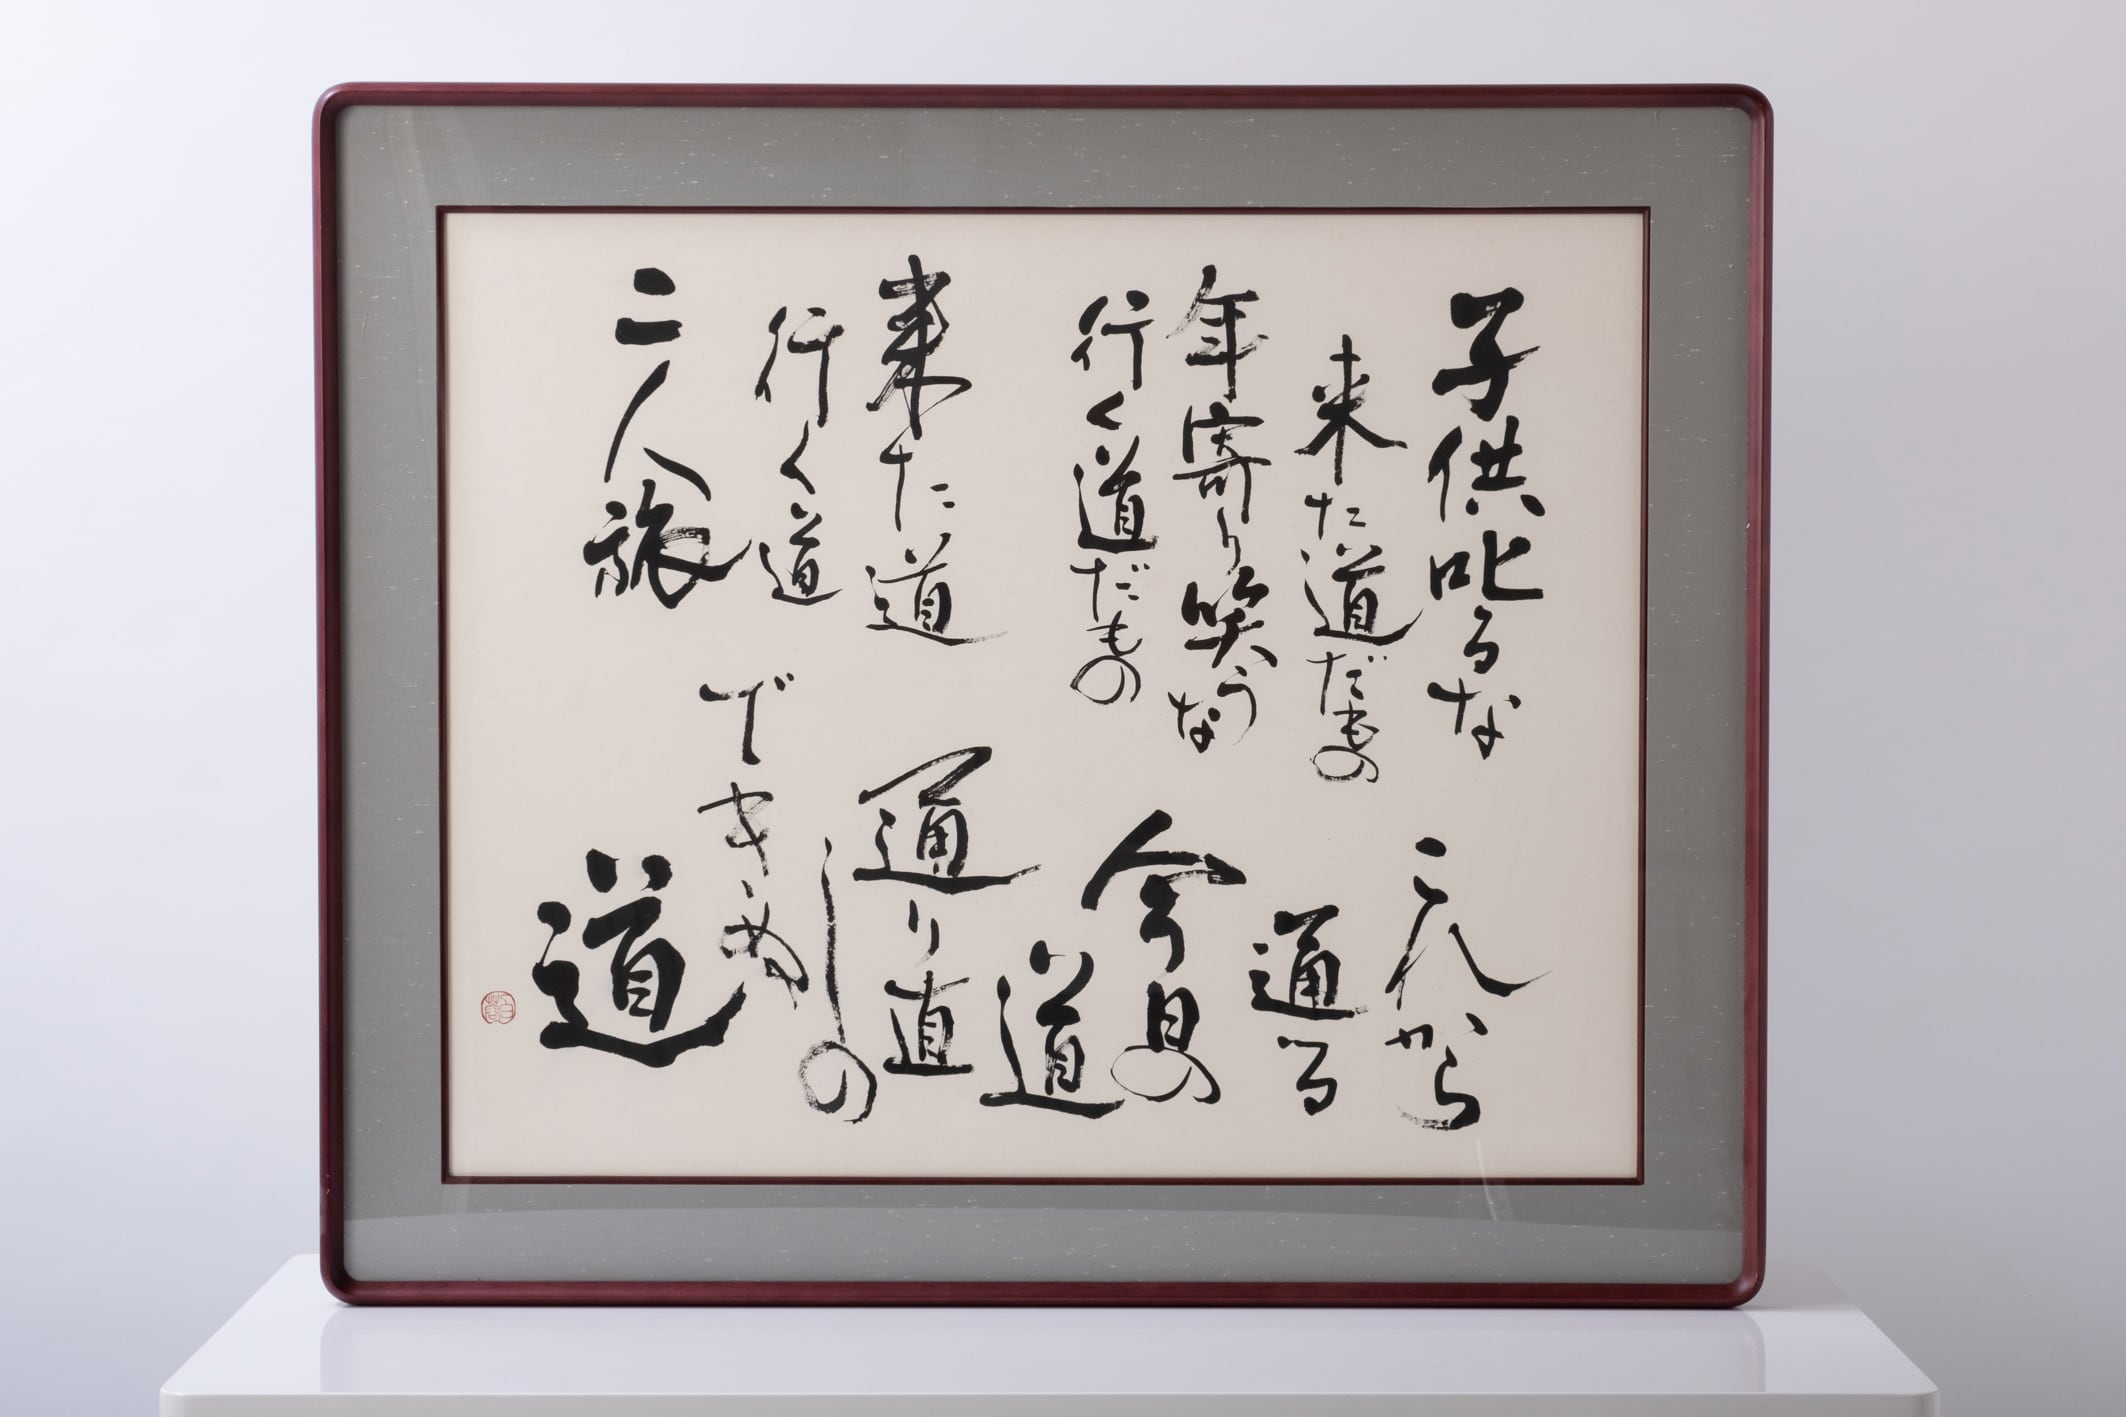 子供叱るな
来た道だもの
年寄り笑うな
行く道だもの
来た道
行く道
二人旅
これから
通る
今日の
道
通り直
しの
できぬ
道